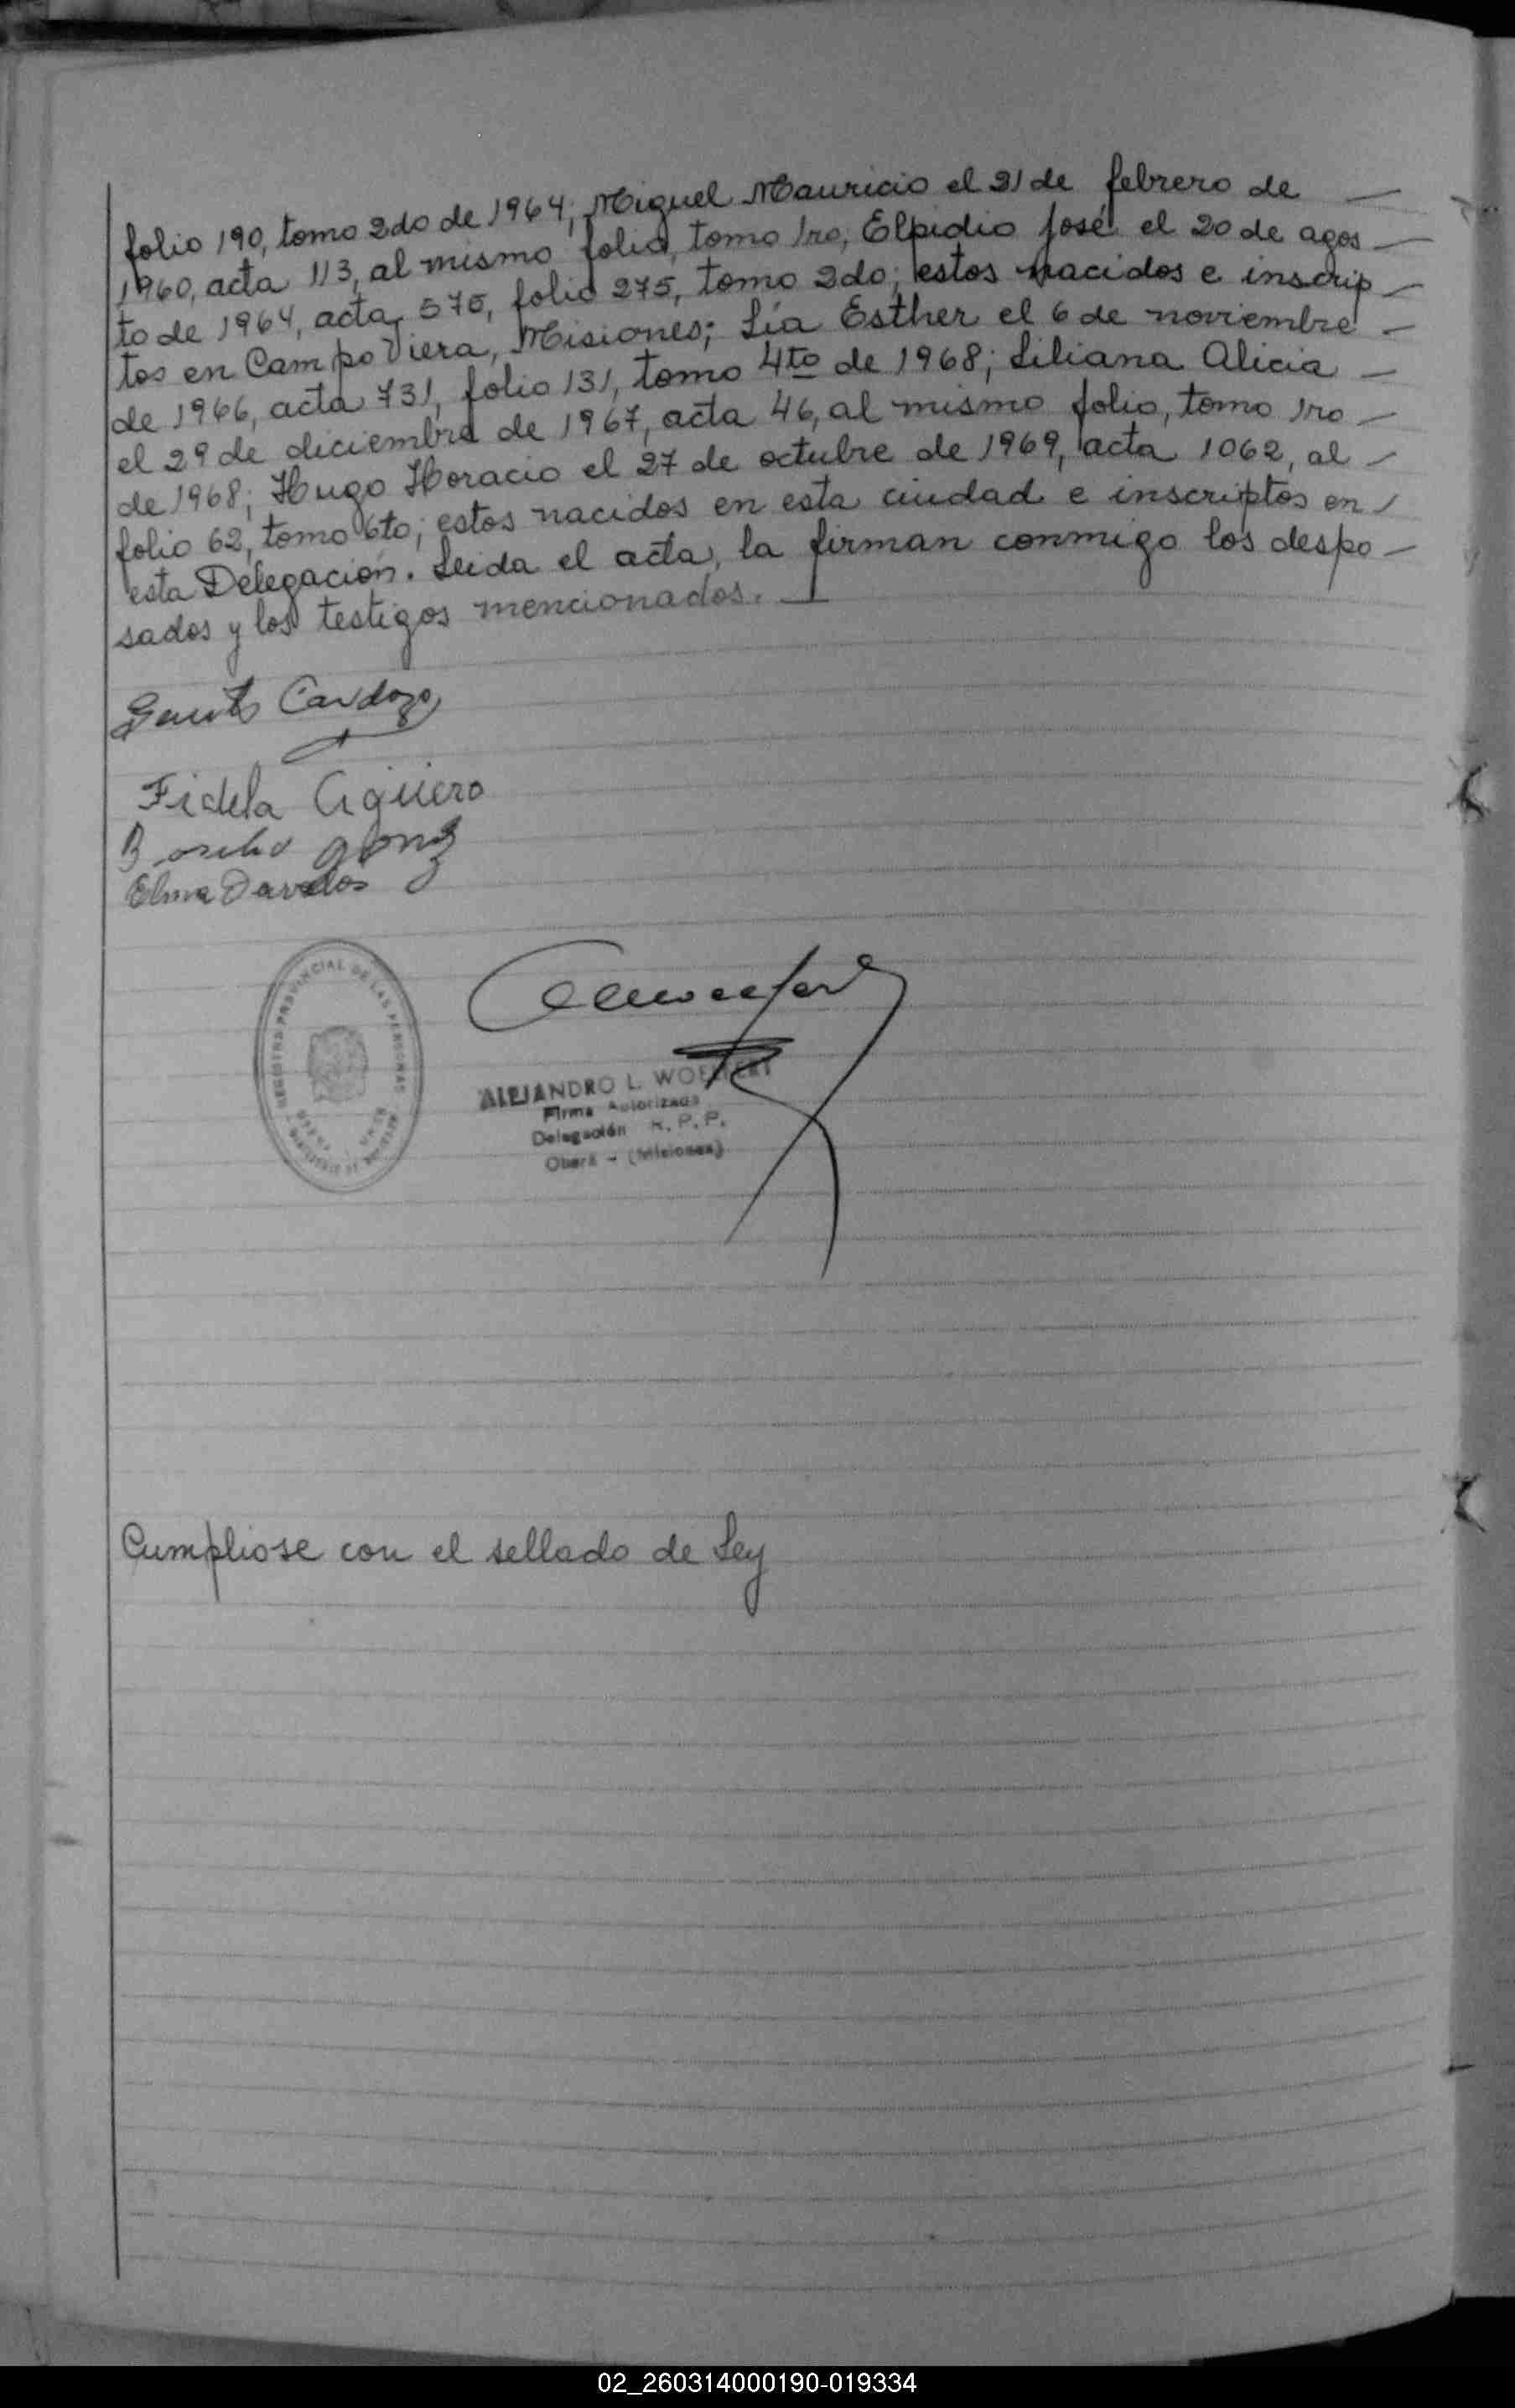 folio 190, tomo 2do de 1964; Miguel Mauricio el 21 de febrero de —
1960, acta 113, al mismo folio, tomo 1ro, Elpidio José el 20 de agos —
to de 1964, acta 575, folio 275, tomo 2do; estos nacidos e inscrip —
tos en Campo Viera, Misiones; Lía Esther el 6 de noviembre —
de 1966, acta 731, folio 131, tomo 4to de 1968; Liliana Alicia —
el 29 de diciembre de 1967, acta 46, al mismo folio, tomo 1ro —
de 1968; Hugo Horacio el 27 de octubre de 1969, acta 1062, al —
folio 62, tomo 6to; estos nacidos en esta ciudad e inscriptos en —
esta Delegación. Leida el acta, la firman conmigo los despo —
sados y los testigos mencionados. —
Cardozo
Fidela Agüero
Elma Davalos
REGISTRO PROVINCIAL DE LAS PERSONAS
ALEJANDRO L.
Firma Autorizada
Delegación R. P. P.
Oberá - (Misiones)
Cumpliose con el sellado de Ley
02_260314000190-019334